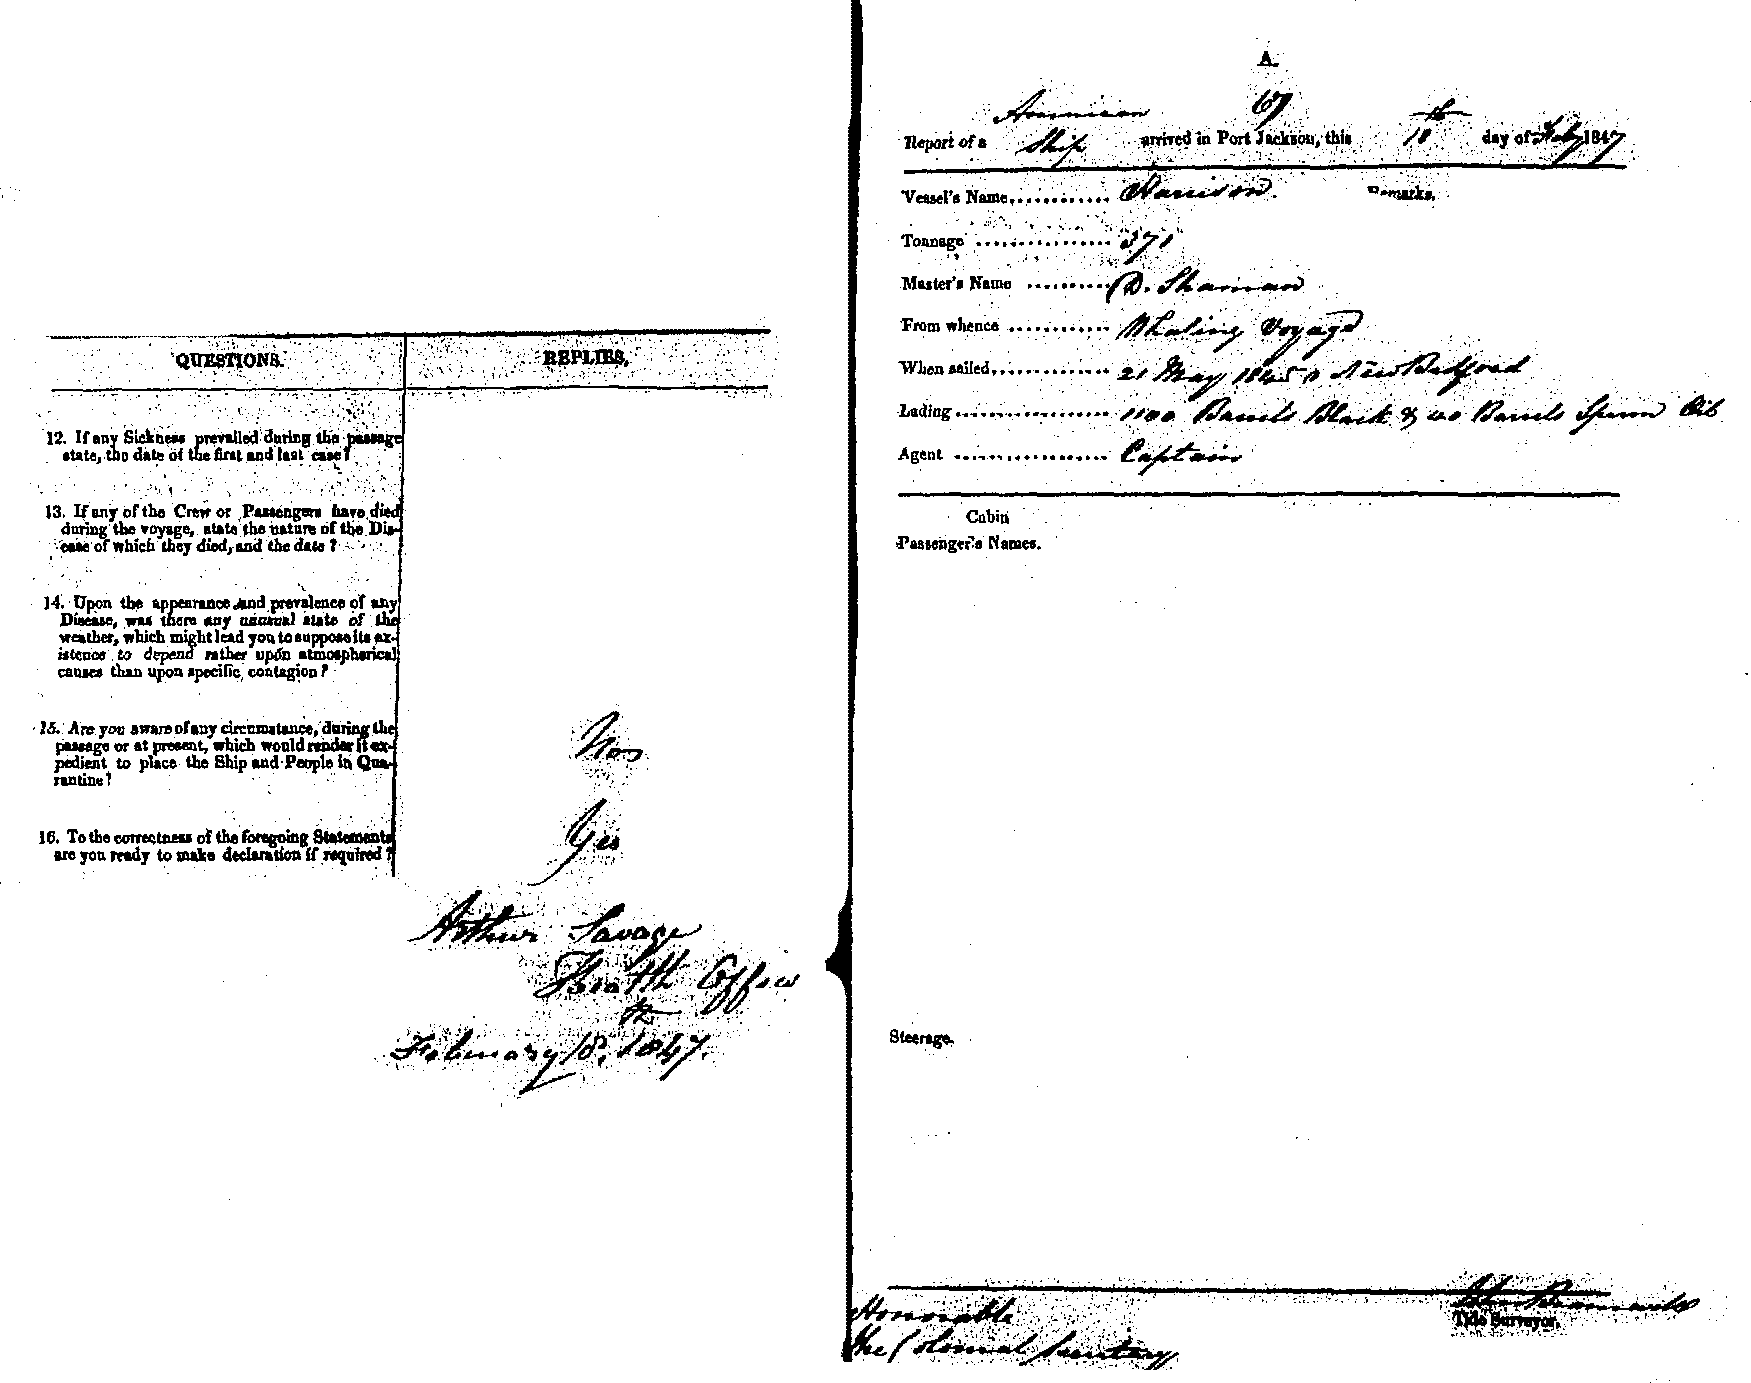 QUESTIONS.
REPLIES.
12. If any Sickness prevailed during the passage
state, the date of the first and last case?
13. If any of the Crew or Passengers have died
during the voyage, state the nature of the Dis-
ease of which they died, and the date?
14. Upon the appearance and prevalence of any
Disease, was there any unusual state of the
weather, which might lead you to suppose its ex-
istence to depend rather upon atmospherical
causes than upon specific contagion?
15. Are you aware of any circumstance, during the
passage or at present, which would render it ex-
pedient to place the Ship and People in Qua-
rantine?
No
16. To the correctness of the foregoing Statements
are you ready to make declaration if required?
Yes
Arthur Savage
Health Officer
February 18th, 1847.
A.
67
American
Report of a Ship arrived in Port Jackson, this 18th day of Feby 1847
Vessel's Name............ Harrison.
Remarks.
Tonnage ............... 371
Master's Name .......... D. Sharman
From whence ............ Whaling Voyage
When sailed............. 21 May 1845 New Bedford
Lading.................. 1100 Barrels Black & Barrels Sperm Oil
Agent .................. Captain
Cabin
Passenger's Names.
Steerage.
Tide Surveyor.
Honorable
The Colonial Secretary